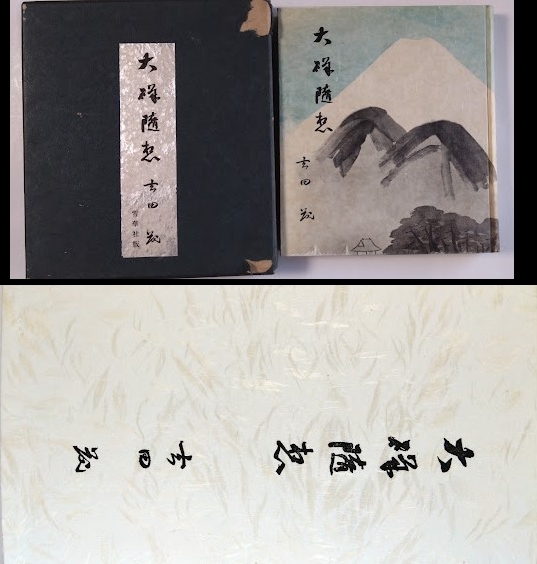 大磯随想
吉田茂
雪華社版
大磯随想
吉田茂
大磯随想
吉田茂